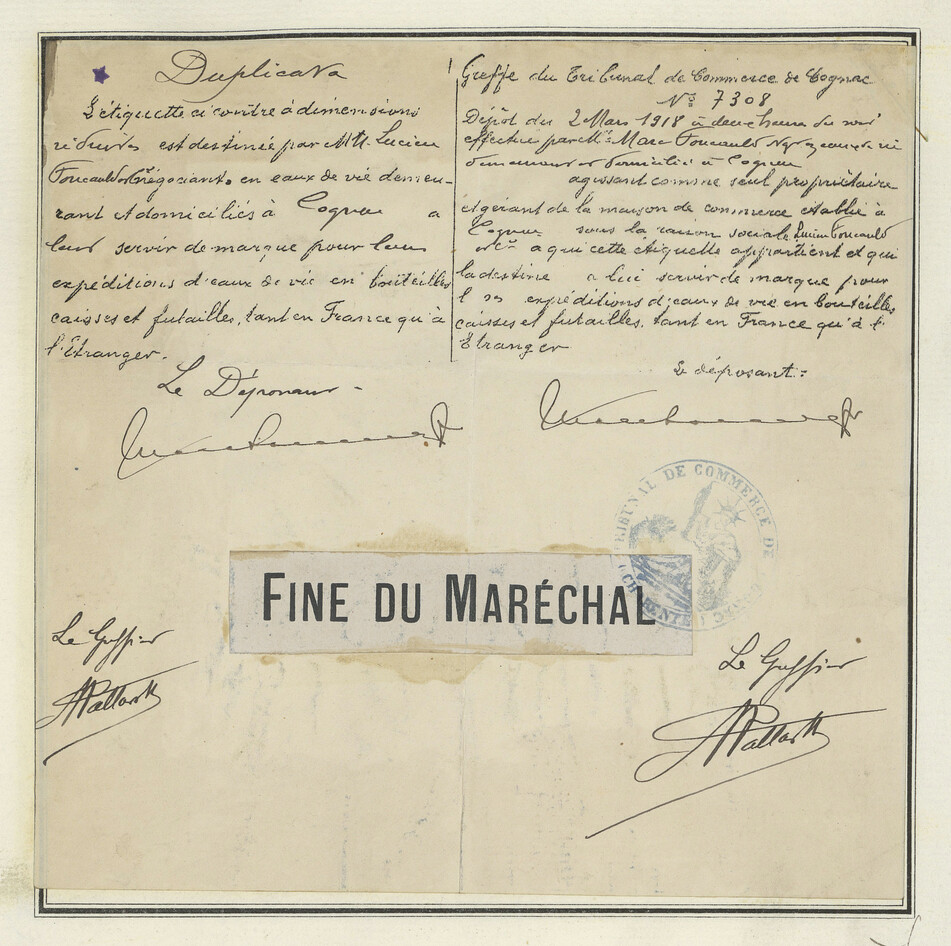 Duplicata
L'étiquette ci contre à dimensions
réduites est destinée par MM. Lucien
Foucauld et Cie négociants en eaux de vie demeu-
rant et domiciliés à Cognac a
leur servir de marque pour leurs
expéditions d'eaux de vie en bouteilles
caisses et futailles, tant en France qu'à
l'Etranger.
Le Déposant
Greffe du Tribunal de Commerce de Cognac
No 7308
Dépôt du 2 Mars 1918 à deux heures du soir
effectué par Mr Marc Foucauld Négociant
demeurant et domicilié à Cognac
agissant comme seul propriétaire
et gérant de la maison de commerce établie à
Cognac sous la raison sociale Lucien Foucauld
et Cie a qui cette étiquette appartient et qui
la destine a lui servir de marque pour
ses expéditions d'eaux de vie en bouteilles
caisses et futailles, tant en France qu'à l'
Etranger
Le déposant:
TRIBUNAL DE COMMERCE DE COGNAC
(CHARENTE)
FINE DU MARÉCHAL
Le Greffier
Le Greffier